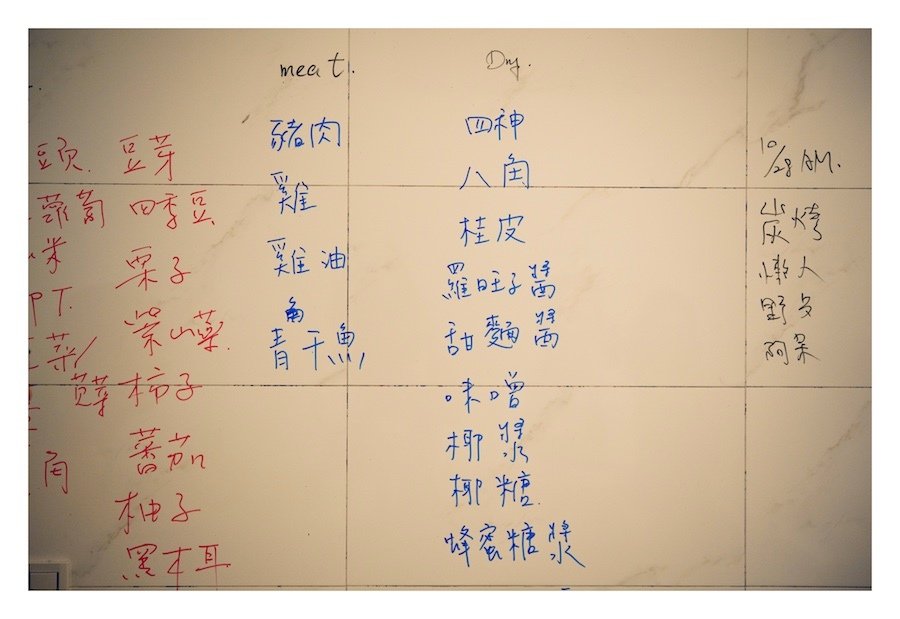 蘿蔔
米
PT.
菜/
角
豆芽
四季豆
栗子
紫山藥.
柿子
蕃茄
柚子
黑木耳
meat.
豬肉
雞
雞油
青干魚
Dry.
四神
八角
桂皮
羅旺子醬
甜麵醬
味噌
椰漿
椰糖
蜂蜜糖漿
10/28 AM.
炭烤
懶人
野
阿呆